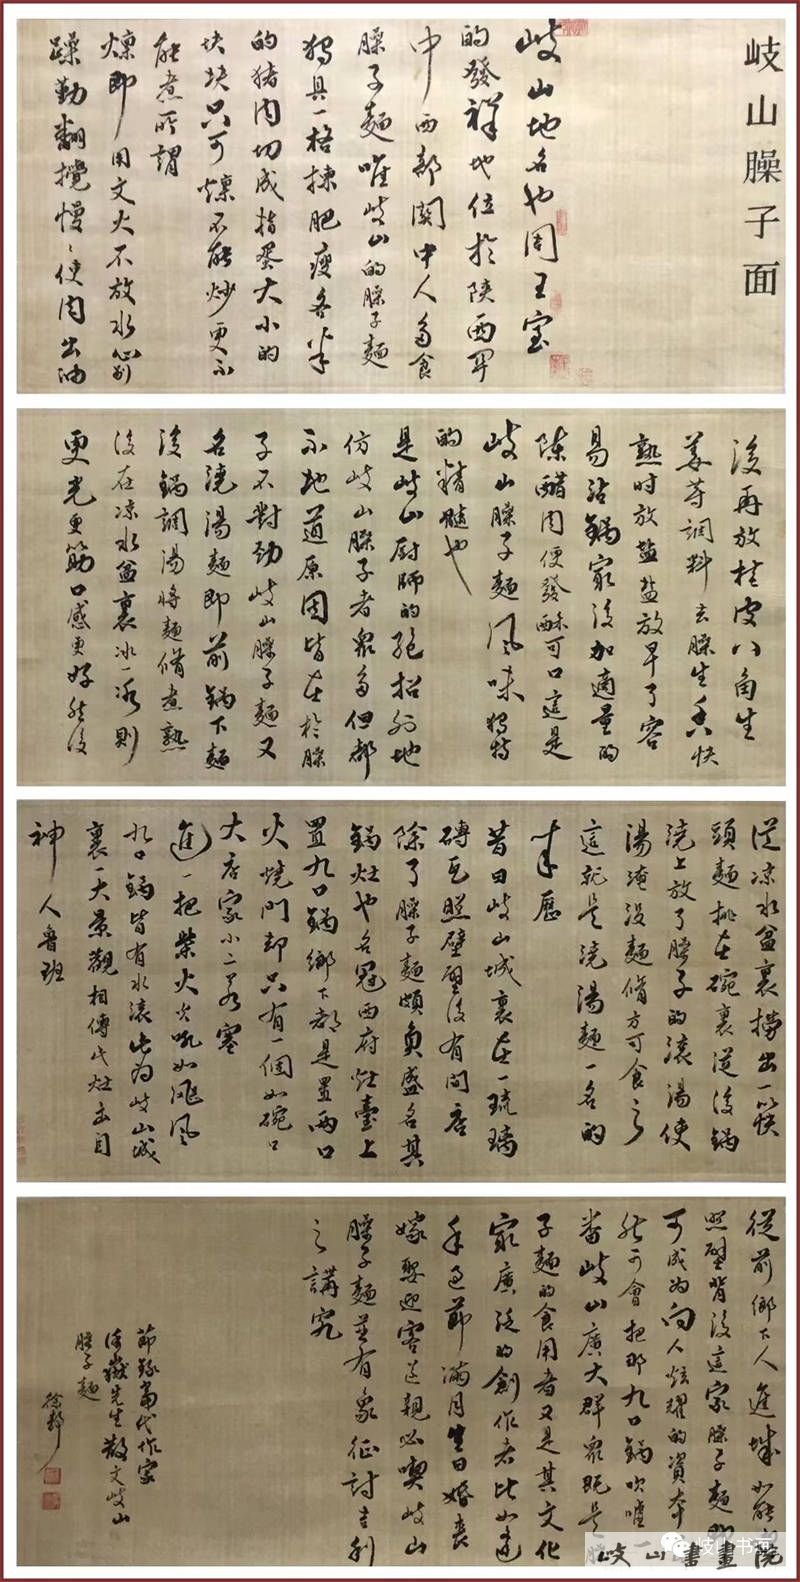 岐山臊子面
岐山地名也周王室
的發祥地位於陝西
中西部関中人多食
臊子麵唯岐山的臊子麵
獨具一格揀肥瘦各半
的猪肉切成指蛋大小的
块块只可燣不能炒更不
能煮所謂
燣即用文火不放水
躁勤翻攪慢慢使肉出油
後再放桂皮八角生
姜等調料去臊生香快
熟时放盐盐放早了容
易沾鍋最後加適量的
陳醋肉便發酥可口這是
岐山臊子麵風味獨特
的精髓也
是岐山厨師的絕招外地
仿岐山臊子者衆多但都
不地道原因皆在於臊
子不對劲岐山臊子麵又
名澆湯麵即前鍋下麵
後鍋調湯將麵條煮熟
後在凉水盆裏冰一冰則
更光更筋口感更好然後
從凉水盆裏撈出一筷
頭麵挑在碗裏從後鍋
澆上放了臊子的滾湯使
湯淹没麵條方可食之
這就是澆湯麵一名的
来歷
昔日岐山城裏在一琉璃
磚瓦照壁壁後有間店
除了臊子麵頗負盛名其
鍋灶也名冠西府灶臺上
置九口鍋鄉下都是置两口
火燒門却只有一個如碗口
大店家小二若塞
進一把柴火火吼如颶風
九口鍋皆有水滾此为岐山城
裏一大景觀相傳此灶出自
神人魯班
從前鄉下人進城如能在
照壁背後這家臊子麵即
可成为向人炫耀的資本
然可會把那九口鍋吹嘘一
番岐山廣大群衆既是臊
子麵的食用者又是其文化
最廣泛的創作者比如逢
年過節滿月生日婚喪
嫁娶迎客送親必喫岐山
臊子麵并有象征討吉利
之講究
節録當代作家
先生散文岐山
臊子麵
岐山書畫院
岐山书画